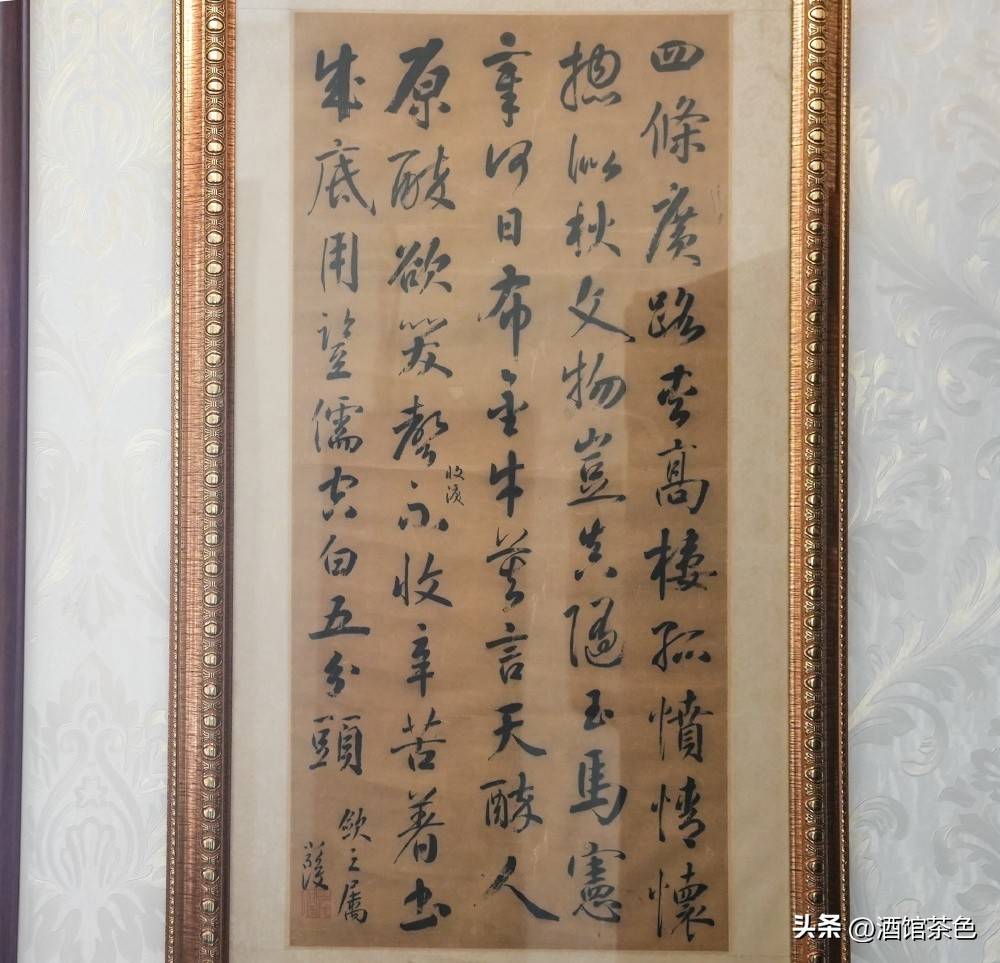 四條廣路夾高樓孤憤情懷
總似秋文物豈真隨玉馬憲
章何日布金牛莫言天醉人
原醉欲哭聲不收辛苦著書
收淚
成底用豎儒空白五分頭
斂之屬
嚴復
头条 @酒馆茶色